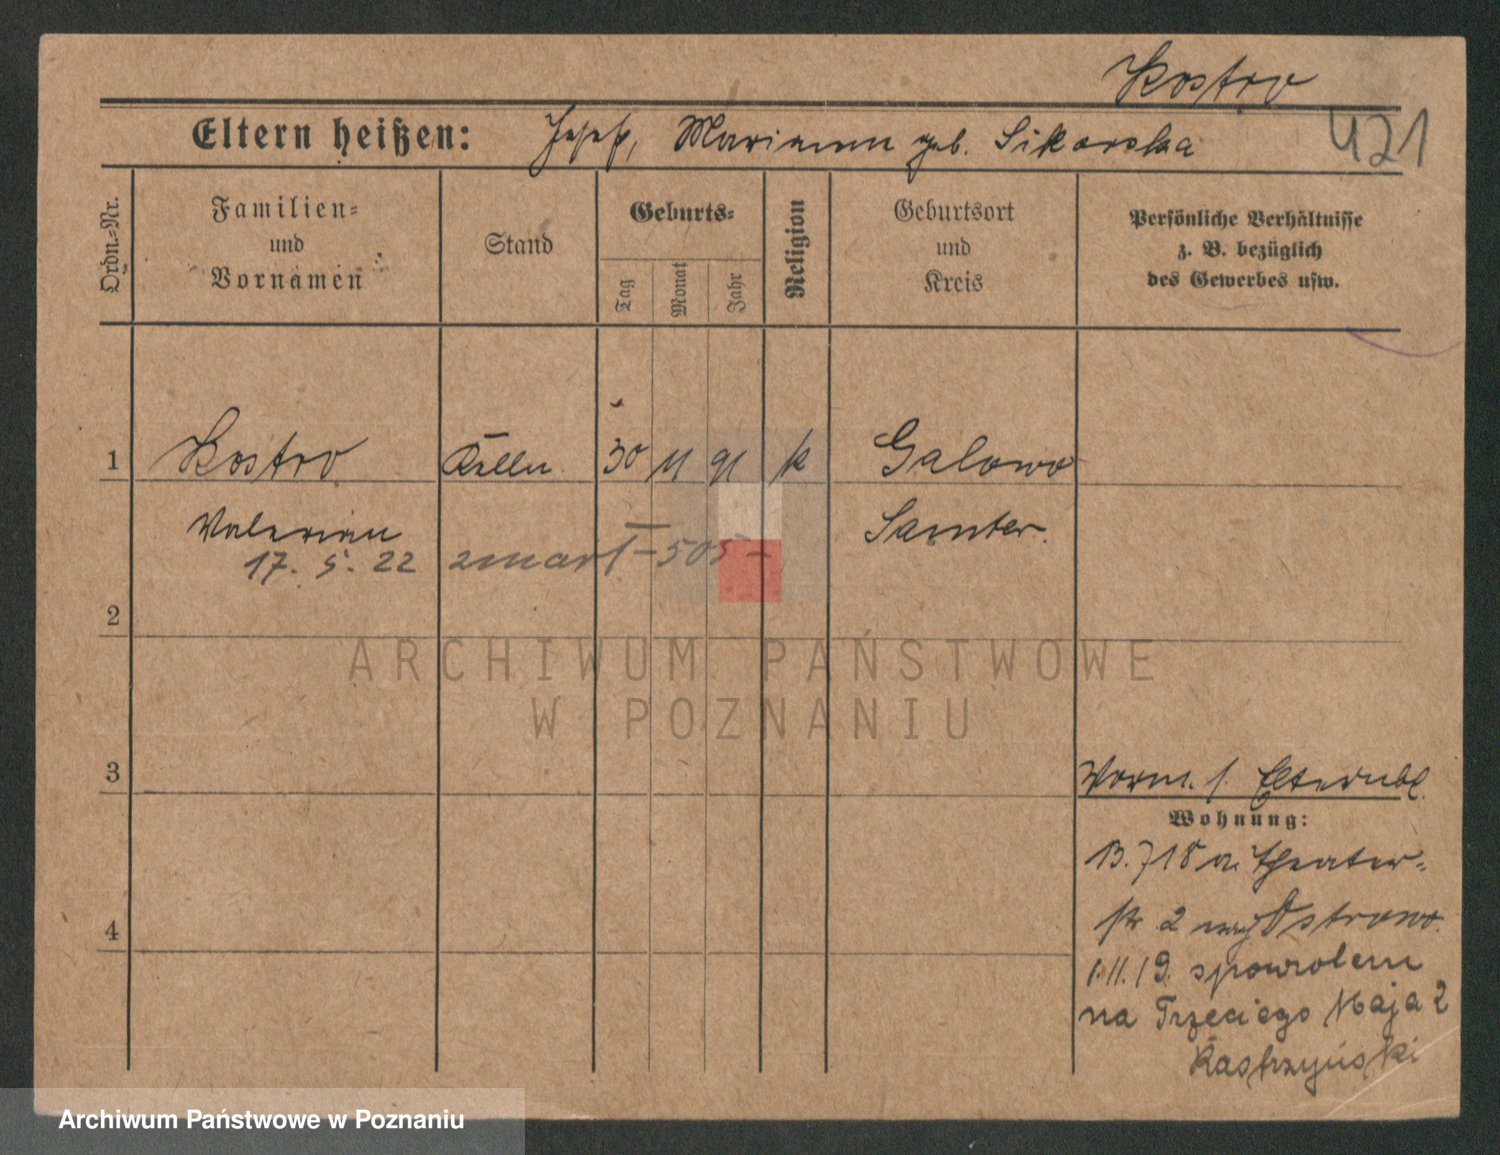 Kostro
Eltern heißen: Josef, Mariann geb. Sikorska
421
Ordn.-Nr.
Familien-
und
Vornamen
Stand
Geburts-
Tag
Monat
Jahr
Religion
Geburtsort
und
Kreis
Persönliche Verhältnisse
z. B. bezüglich
des Gewerbes usw.
1 Kostro Kelln. 30 11 91 k Galowo
Valerian Samter.
17. 5. 22 zmarł - 505 -
2
ARCHIWUM PAŃSTWOWE
W POZNANIU
3
Vorm. s. Elternbl.
Wohnung:
B. 718 a. Theater-
str 2 Ostrowo.
1.11.19. spowrotem
na Trzeciego Maja 2
Kastrzyński
4
Archiwum Państwowe w Poznaniu